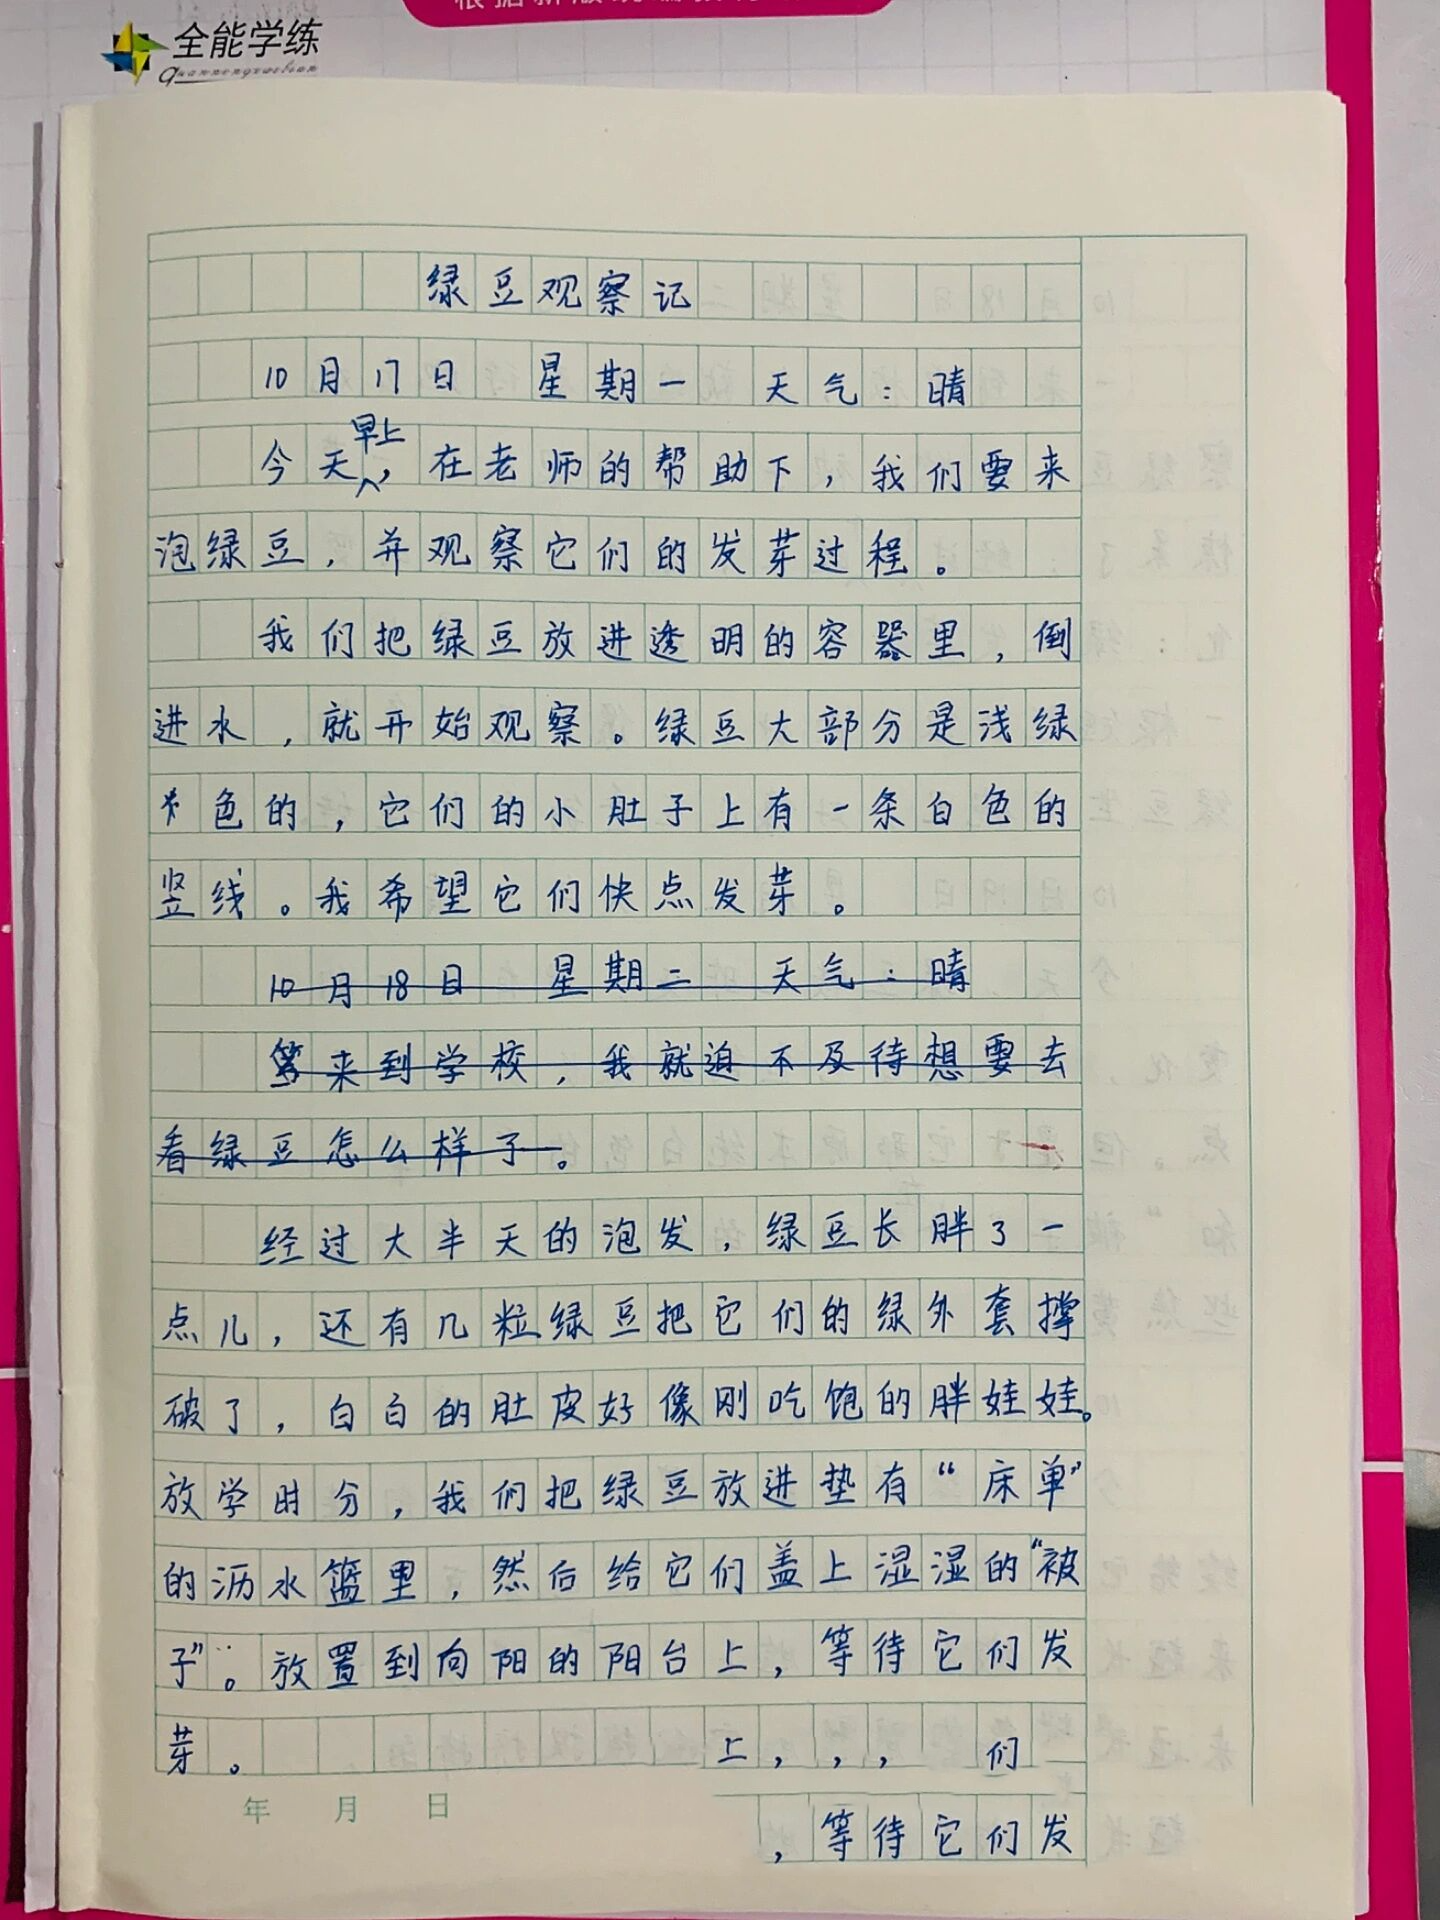 全能学练
绿豆观察记
10月17日 星期一 天气：晴
今天早上，在老师的帮助下，我们要来
泡绿豆，并观察它们的发芽过程。
我们把绿豆放进透明的容器里，倒
进水，就开始观察。绿豆大部分是浅绿
色的，它们的小肚子上有一条白色的
竖线。我希望它们快点发芽。
10月18日 星期二 天气：晴
来到学校，我就迫不及待想要去
看绿豆怎么样子。
经过大半天的泡发，绿豆长胖了一
点儿，还有几粒绿豆把它们的绿外套撑
破了，白白的肚皮好像刚吃饱的胖娃娃。
放学时分，我们把绿豆放进垫有“床单”
的沥水篮里，然后给它们盖上湿湿的“被
子”。放置到向阳的阳台上，等待它们发
芽。 上，，， 们
年 月 日
，等待它们发